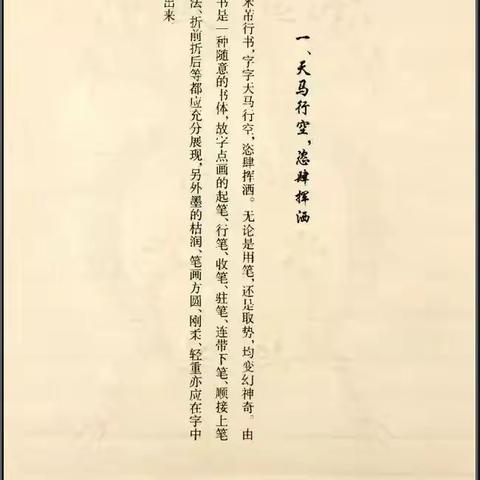 一、天马行空，恣肆挥洒
米芾行书，字字天马行空，恣肆挥洒。无论是用笔，还是取势，均变幻神奇。由
书是一种随意的书体，故字点画的起笔、行笔、收笔、驻笔、连带下笔、顺接上笔
法、折前折后等都应充分展现，另外墨的枯润、笔画方圆、刚柔、轻重亦应在字中
出来